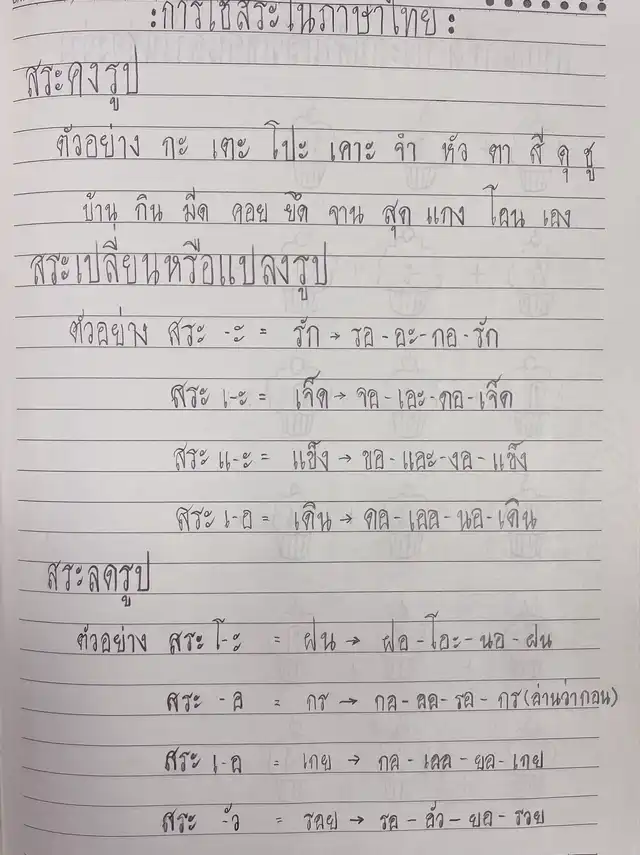 :การใช้สระในภาษาไทย:
สระคงรูป
ตัวอย่าง กะ เตะ โปะ เคาะ จำ หัว ตา สี ดุ ชู
บ้าน กิน มีด คอย ยึด จาน สุด แกง โอน เอง
สระเปลี่ยนหรือแปลงรูป
ตัวอย่าง สระ -ะ = รัก → รอ - อะ - กอ - รัก
สระ เ-ะ = เจ็ด → จอ - เอะ - ดอ - เจ็ด
สระ แ-ะ = แข็ง → ขอ - แอะ - งอ - แข็ง
สระ เ-อ = เดิน → ดอ - เออ - นอ - เดิน
สระลดรูป
ตัวอย่าง สระ โ-ะ = ฝน → ฝอ - โอะ - นอ - ฝน
สระ -อ = กร → กอ - ออ - รอ - กร (อ่านว่ากอน)
สระ เ-อ = เกย → กอ - เออ - ยอ - เกย
สระ -ัว = รอย → รอ - อัว - ยอ - รวย